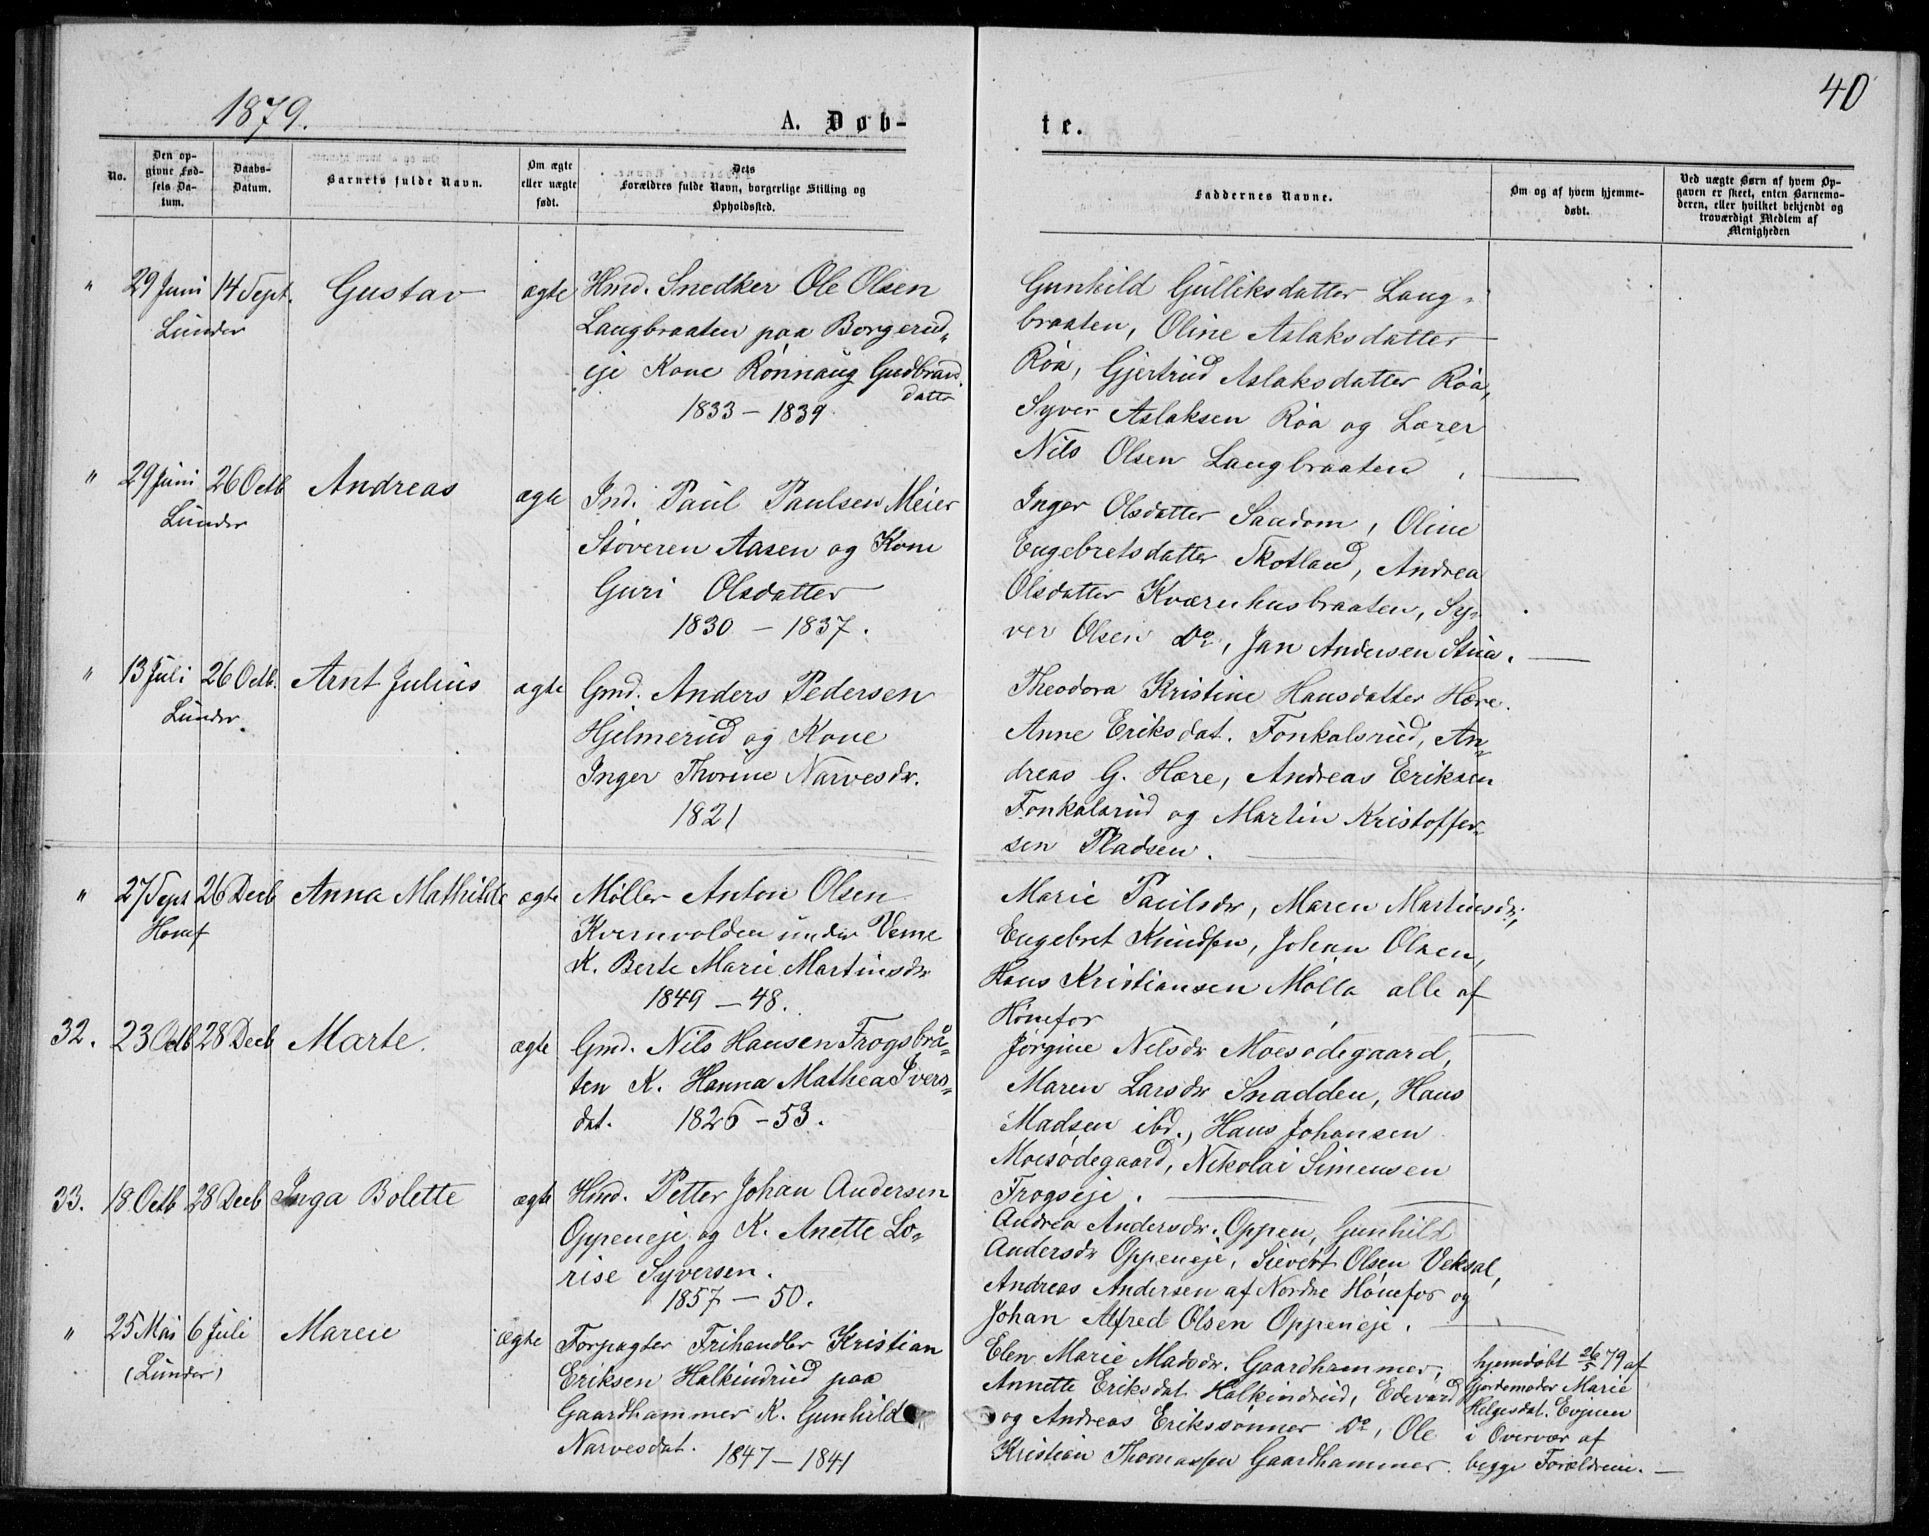 1879.
A. Døb-
te.
40
No.
Den op-
givne Fød-
sels Da-
tum.
Daabs-
Datum.
Barnets fulde Navn.
Om ægte
eller uægte
født.
Dets
Forældres fulde Navn, borgerlige Stilling og
Opholdssted.
Faddernes Navne.
Om og af hvem hjemme-
døbt.
Ved uægte Børn af hvem Op-
gaven er skeet, enten Barnemo-
deren, eller hvilket bekjendt og
troværdigt Medlem af
Menigheden
" 29 Juni 14 Sept. Gustav ægte
Lunder
Hmd. Snedker Ole Olsen
Langbraaten paa Borgerud-
eje Kone Rönnaug Gudbrands
datter
1833 – 1839.
Gunhild Gulliksdatter Lang-
braaten, Oline Aslaksdatter
Röa, Gjertrud Aslaksdatter Röa,
Syver Aslaksen Röa og Lærer
Nils Olsen Langbraaten
" 29 Juni 26 Octb Andreas ægte
Lunder
Ind. Paul Paulsen Meier
Støveren Aasen og Kone
Guri Olsdatter
1830 – 1837.
Inger Olsdatter Sandom, Oline
Engebretsdatter Skotland, Andrea
Olsdatter Kværnhusbraaten, Sy-
ver Olsen Do, Jan Andersen Stua.
" 13 Juli 26 Octb. Arnt Julius ægte
Lunder.
Gmd. Anders Pedersen
Hjelmerud og Kone
Inger Thorine Narvesdr.
1821
Theodora Kristine Hansdatter Hære.
Anne Eriksdat. Fonkalsrud, An-
dreas G. Hære, Andreas Eriksen
Fonkalsrud og Martin Kristoffer-
sen Pladsen.
" 27 Sept 26 Decb Anna Mathilde ægte
Honef
Møller Anton Olsen
Kvernvolden under Veme
K. Berte Marie Martinsdr
1849 – 48.
Marie Paulsdr, Maren Martinsdr,
Engebret Knudsen, Johan Olsen,
Hans Kristiansen Mölla alle af
Hönefos
32. 23 Octb 28 Decb Marte. ægte
Gmd. Nils Hansen Frogsbrå-
ten K. Hanna Mathea Ivers-
dat. 1826 – 53.
Jørgine Nilsdr Moesødegaard,
Maren Larsdr Snadden, Hans
Madsen ibd., Hans Johansen
Moesødegaard, Nikolai Simensen
Frogseje.
33. 18 Octb. 28 Decb Inga Bolette ægte
Hmd. Petter Johan Andersen
Oppeneje og K. Anette Lo-
rise Syversen.
1857 – 50.
Andrea Andersdr. Oppen, Gunhild
Andersdr Oppeneje, Sievert Olsen Veksal,
Andreas Andersen af Nordre Hønefos og
Johan Alfred Olsen Oppeneje.
" 25 Mai 6 Juli Mareie ægte
(Lunder)
Forpagter Frihandler Kristian
Eriksen Halkindrud paa
Gaardhammer K. Gunhild
Narvesdat. 1847 – 1841
Elen Marie Madsdr. Gaardhammer,
Annette Eriksdat Halkindrud, Edevard
og Andreas Erikssønner Do, Ole
Kristian Thomassen Gaardhammer.
hjemdøbt 26/5 79 af
Gjordemoder Marie
Helgesdat. Evjuen
i Overvær af
begge Forældrene. —